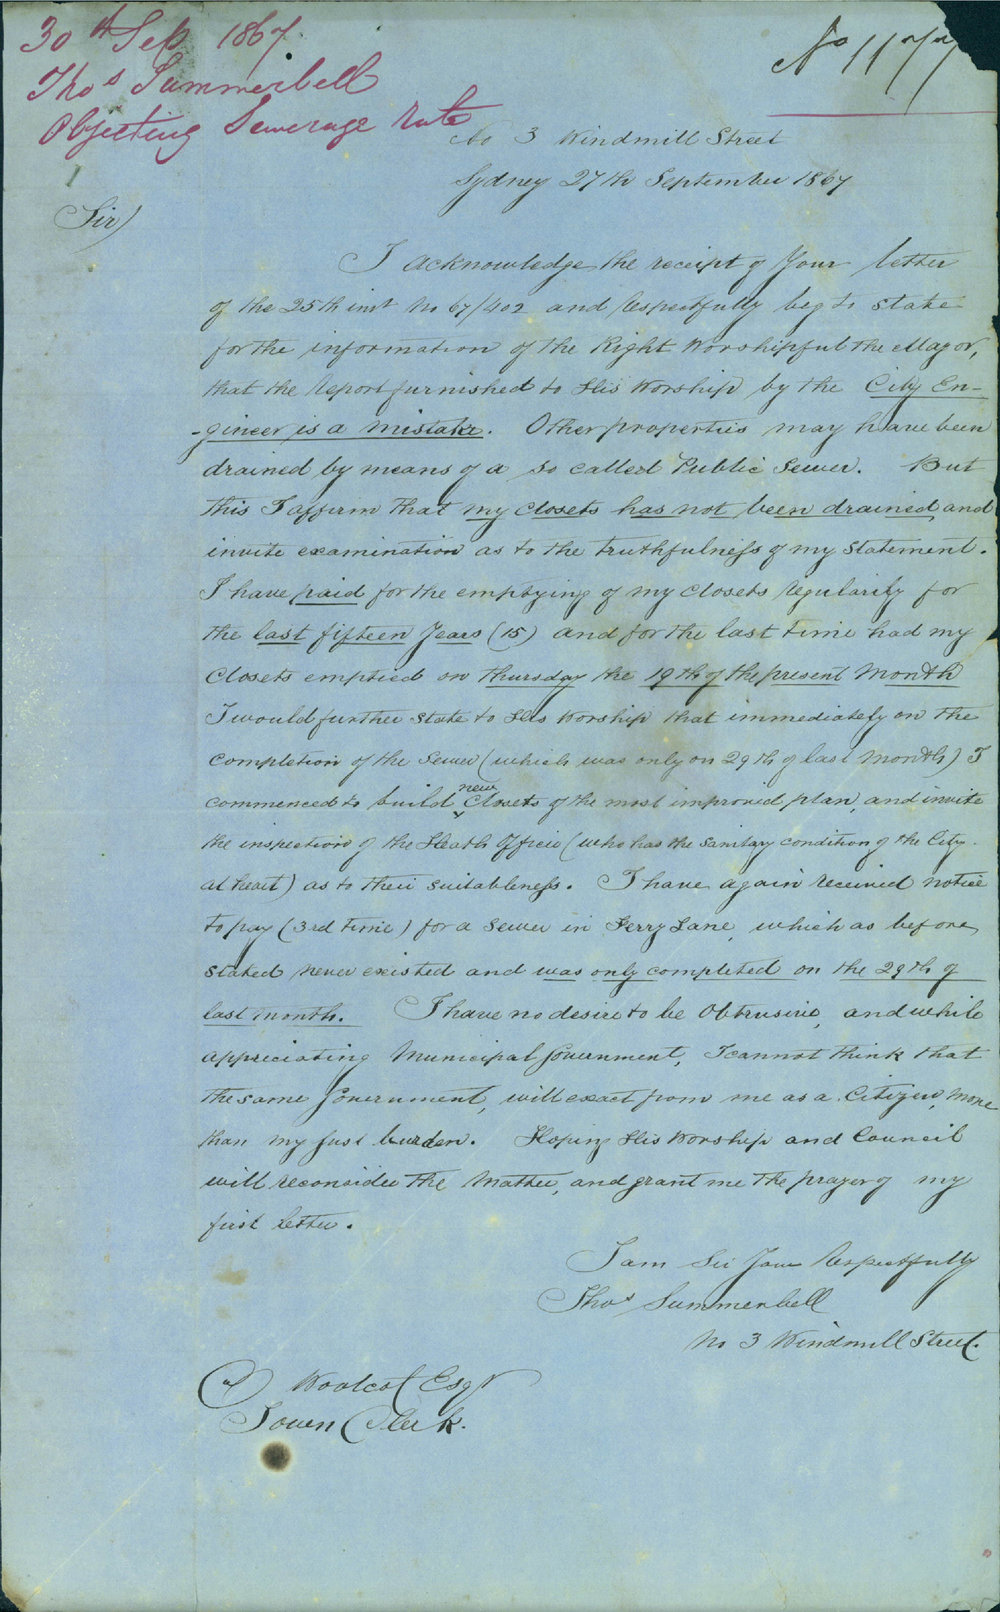 30th Sep 1867
Thos Summerbell
Objecting Sewerage rate
No 1177
No 3 Windmill Street
Sydney 27th September 1867
Sir,
I acknowledge the receipt of Your letter
of the 25th inst No 67/402 and Respectfully beg to state
for the information of the Right Worshipful the Mayor,
that the Report furnished to His Worship by the City En-
-gineer is a mistake. Other properties may have been
drained by means of a so called Public Sewer. But
this I affirm that my closets has not been drained, and
invite examination as to the truthfulness of my statement.
I have paid for the emptying of my closets regularily for
the last fifteen Years (15) and for the last time had my
closets emptied on thursday the 19th of the present Month
I would further state to His Worship that immediately on the
completion of the Sewer (which was only on 29th of last Month) I
commenced to build new closets of the most improved plan, and invite
the inspection of the Heath Officer (who has the sanitary condition of the City
at heart) as to their suitableness. I have again received notice
to pay (3rd time) for a sewer in Ferry Lane, which as before
stated never existed and was only completed on the 29th of
last month. I have no desire to be Obtrusive, and while
appreciating Municipal Government, I cannot think that
the same Government, will exact from me as a Citizen, More
than my just burden. Hoping His Worship and Council
will reconsider the Matter, and grant me the prayer of my
first letter.
I am Sir Your Respectfully
Thos Summerbell
No 3 Windmill Street.
Woolcot Esqr
Town Clerk.